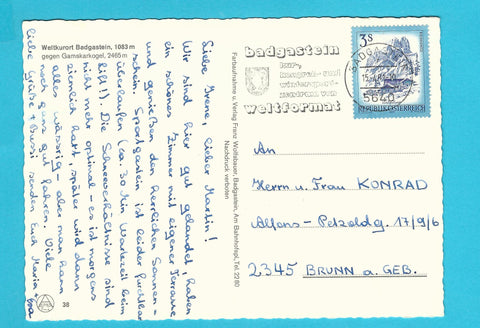 Weltkurort Badgastein, 1083 m
gegen Gamskarkogel, 2465 m
Liebe Irene, lieber Martin!
Wir sind hier gut gelandet, haben
ein schönes Zimmer mit eigener Terrasse
und genießen den herrlichen Sonnen-
schein. Sportgastein ist leider furchtbar
überlaufen (ca. 30 Min Wartezeit beim
Lift!). Die Schneeverhältnisse sind
nicht mehr optimal - es ist morgens
ziemlich hart, später wird dann
alles wässrig - aber man kann
noch ganz gut fahren. Viele
liebe Grüße + Bussi senden Euch Maria
38
Farbaufnahme u. Verlag Franz Wolfsbauer, Badgastein, Am Bahnhofspl., Tel. 22 80
Nachdruck verboten
badgastein
kur-,
kongress- und
wintersport-
zentrum von
weltformat
5640
3 S
REPUBLIK ÖSTERREICH
An
Herrn u. Frau KONRAD
Alfons - Petzoldg. 17/9/6
2345 BRUNN a. GEB.